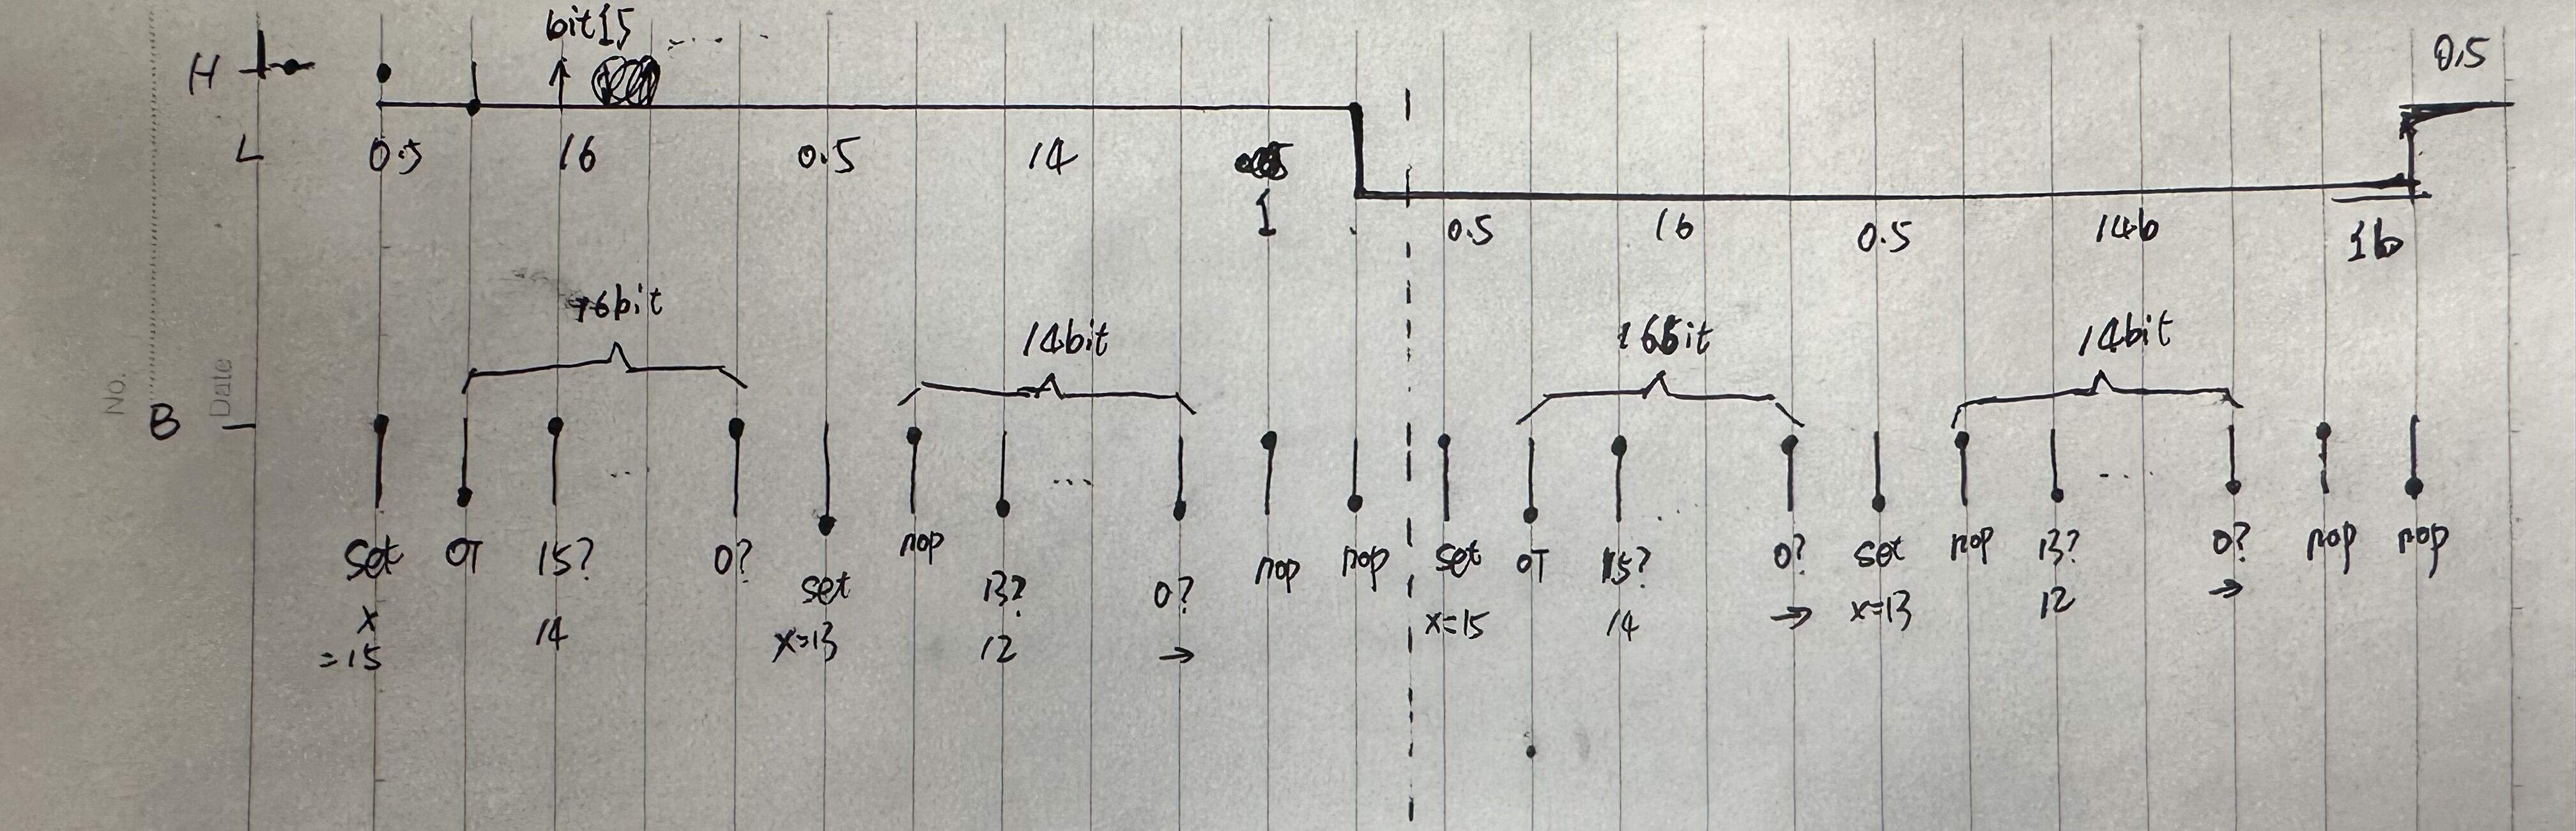 bit15
0.5
H
L
0.5 16 0.5 14
1
0.5 16 0.5 14b 1b
16bit 14bit 16bit 14bit
No.
Date
B
set OT 15? 0? set nop 13? 0? nop nop set OT 15? 0? set nop 13? 0? nop nop
x 14 x=13 12 → x=15 14 → x=13 12 →
=15